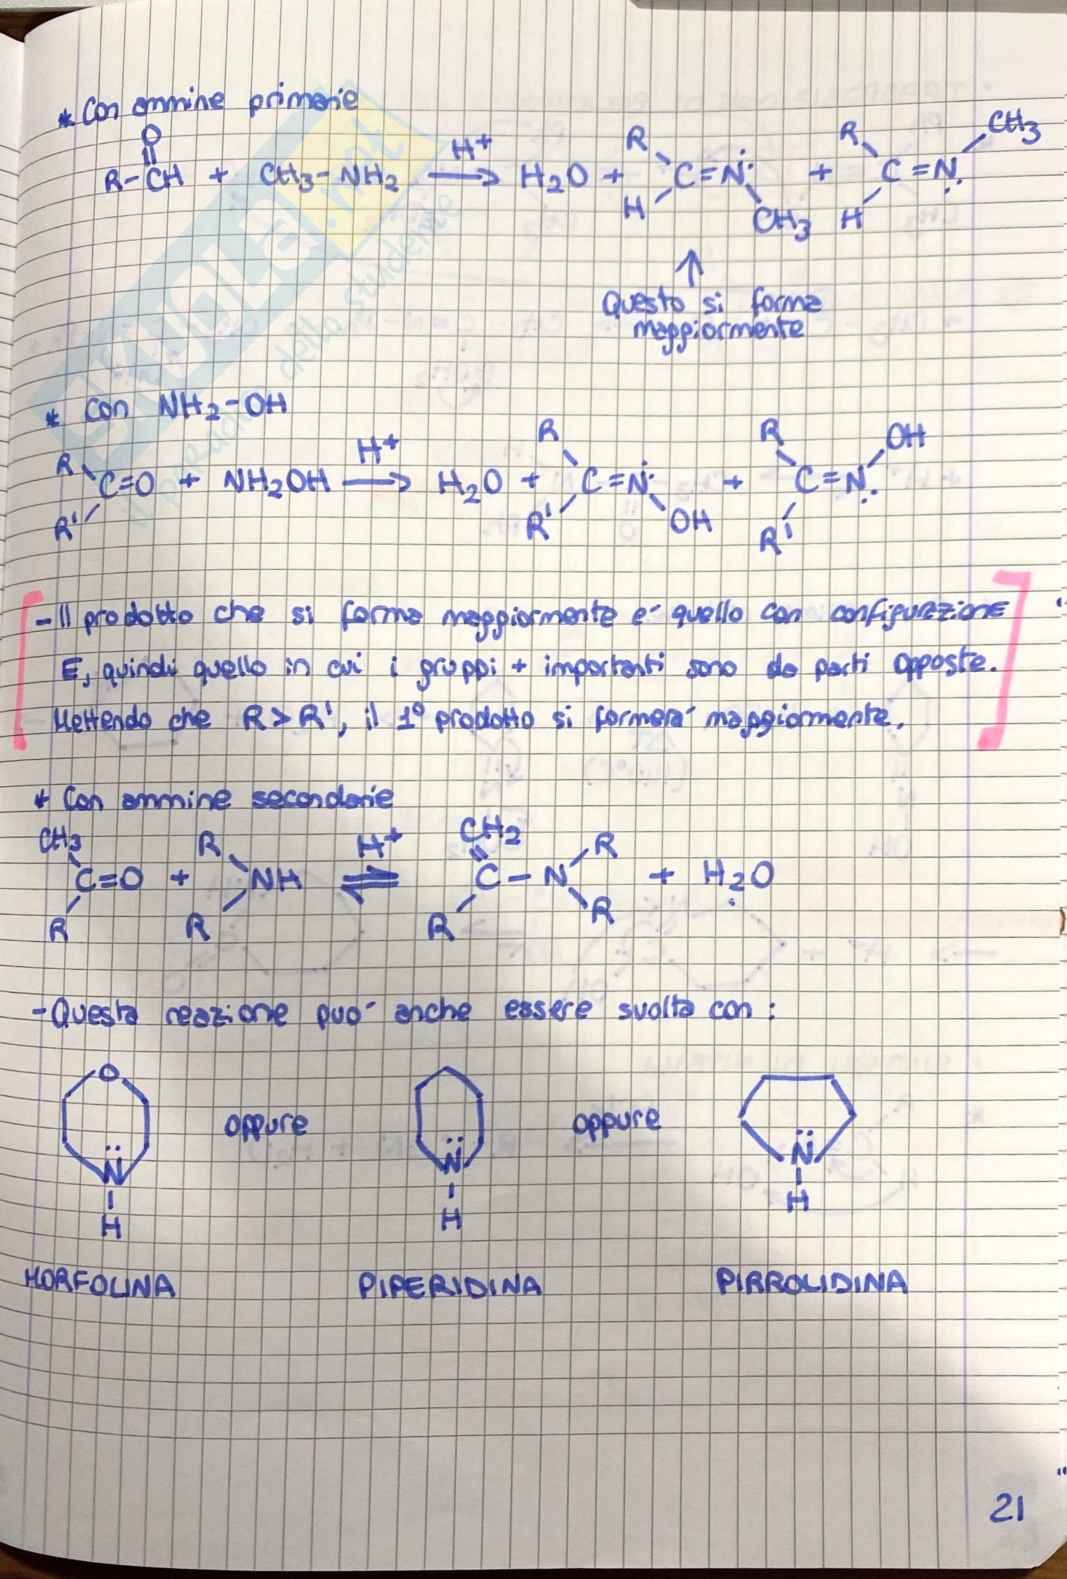 * Con ammine primarie
O
R-CH + CH3-NH2 → H+ H2O + R H C=N CH3 + R H C=N CH3
Questo si forma
maggiormente
SKUOLA.net
il paradiso dello studente
* Con NH2-OH
R R' C=O + NH2OH → H+ H2O + R R' C=N OH + R R' C=N OH
- Il prodotto che si forma maggiormente e' quello con configurazione
E, quindi quello in cui i gruppi + importanti sono da parti opposte.
Mettendo che R>R', il 1° prodotto si formera' maggiormente.
* Con ammine secondarie
CH3 R C=O + R R NH ⇌ H+ CH2 C-N R R R + H2O
- Questa reazione puo' anche essere svolta con:
O N H oppure N H oppure N H
MORFOLINA PIPERIDINA PIRROLIDINA
21